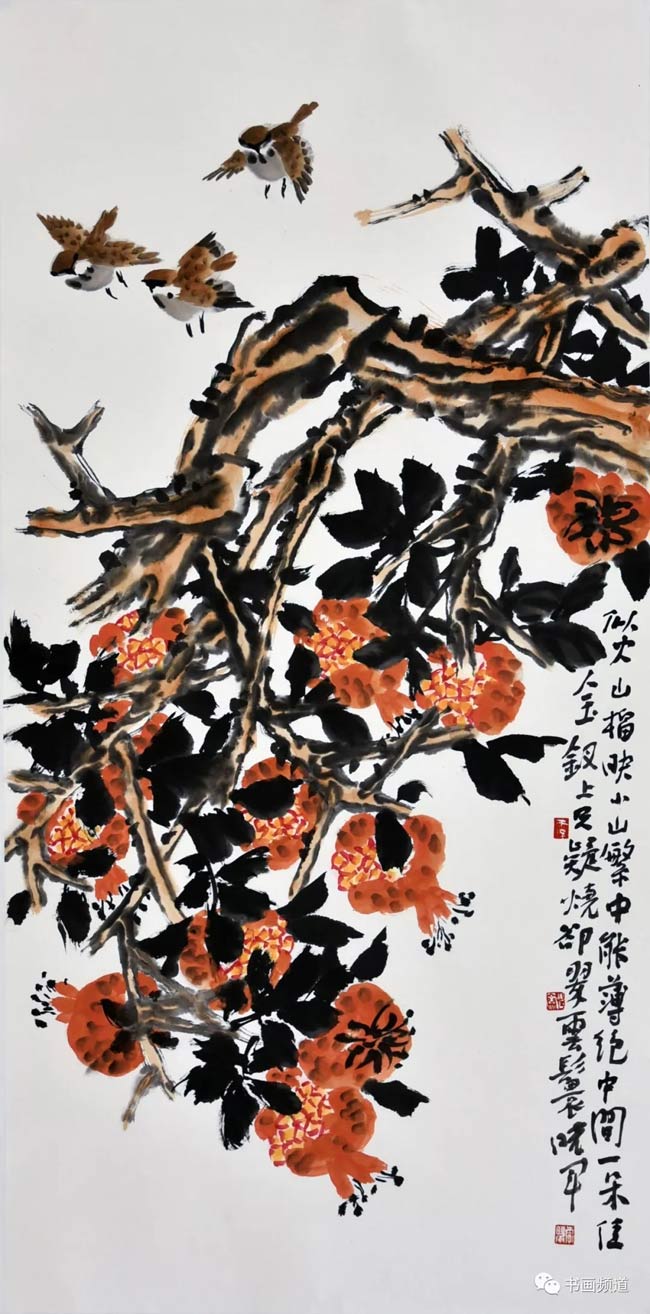 似火山榴映小山繁中能薄绝中間一朵佳
人玉釵上只疑燒卻翠雲鬟晓军
书画频道